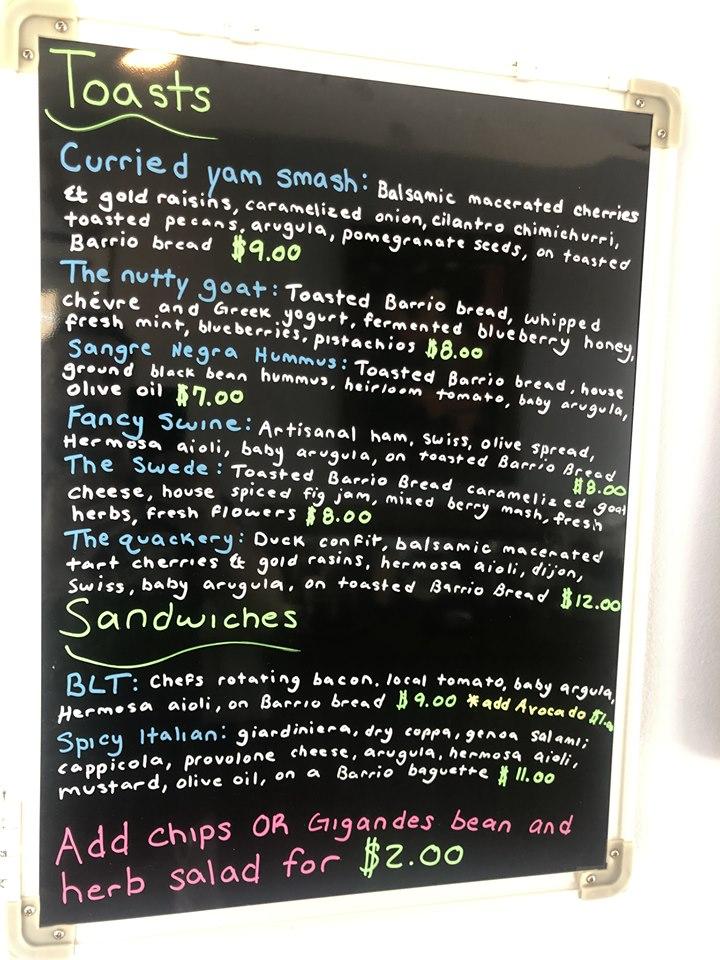 Toasts
Curried yam smash: Balsamic macerated cherries
& gold raisins, caramelized onion, cilantro chimichurri,
toasted pecans, arugula, pomegranate seeds, on toasted
Barrio bread $9.00
The nutty goat: Toasted Barrio bread, whipped
chévre and Greek yogurt, fermented blueberry honey,
fresh mint, blueberries, pistachios $8.00
Sangre Negra Hummus: Toasted Barrio bread, house
ground black bean hummus, heirloom tomato, baby arugula,
olive oil $7.00
Fancy Swine: Artisanal ham, swiss, olive spread,
Hermosa aioli, baby arugula, on toasted Barrio Bread
$8.00
The Swede: Toasted Barrio Bread caramelized goat
cheese, house spiced fig jam, mixed berry mash, fresh
herbs, fresh flowers $8.00
The quackery: Duck confit, balsamic macerated
tart cherries & gold rasins, hermosa aioli, dijon,
Swiss, baby arugula, on toasted Barrio Bread $12.00
Sandwiches
BLT: Chefs rotating bacon, local tomato, baby argula,
Hermosa aioli, on Barrio bread $9.00 *add Avocado
Spicy Italian: giardiniera, dry coppa, genoa salami,
cappicola, provolone cheese, arugula, hermosa aioli,
mustard, olive oil, on a Barrio baguette $11.00
Add chips OR Gigandes bean and
herb salad for $2.00